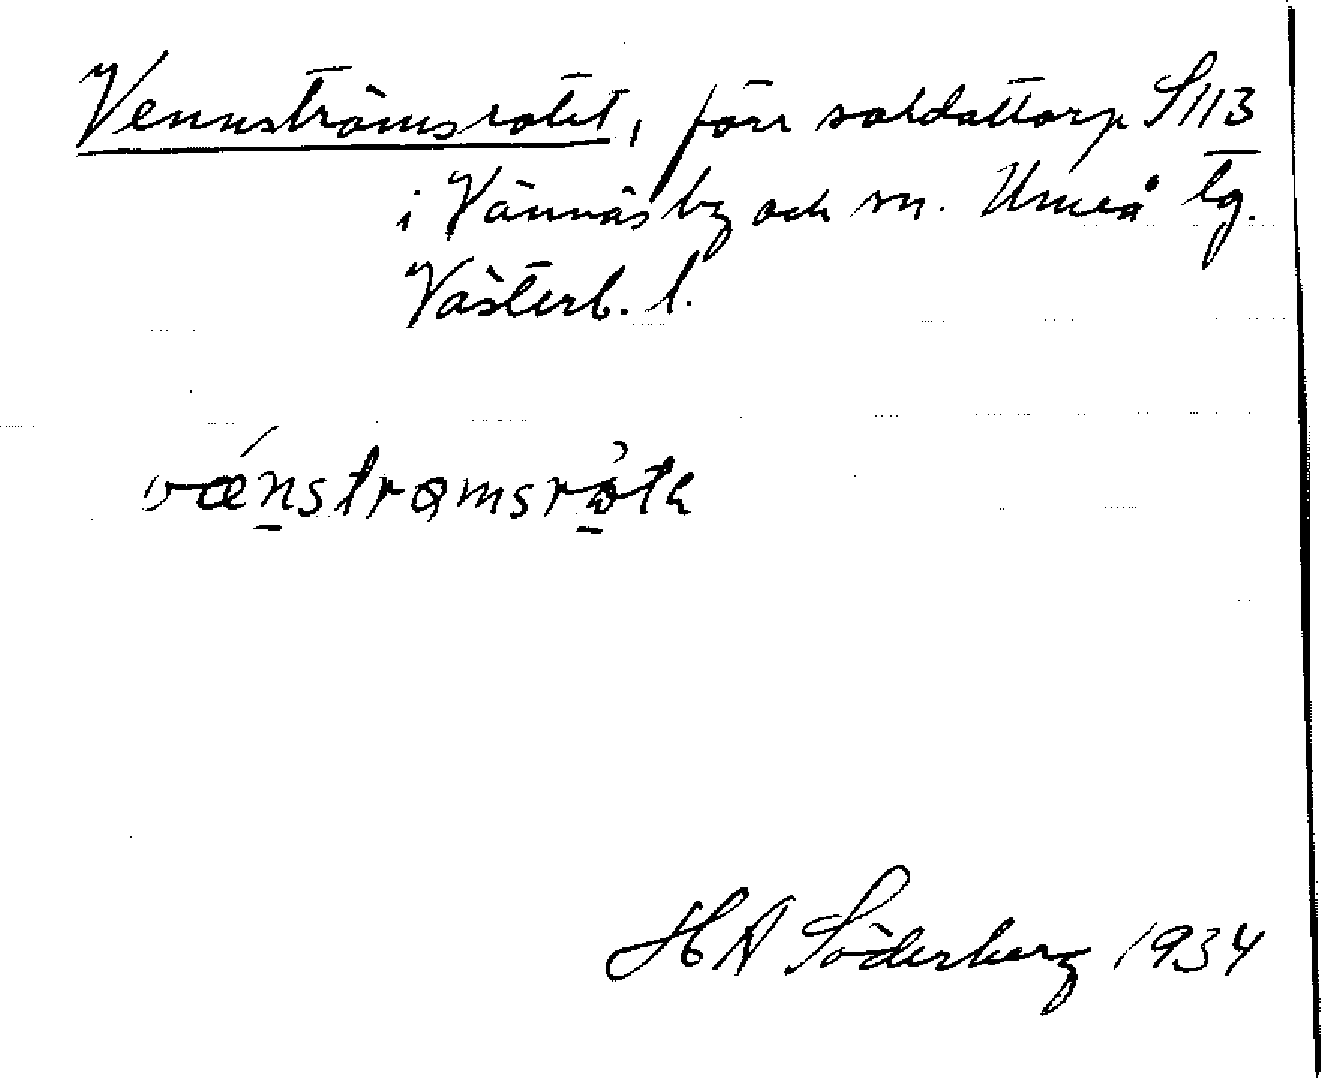 Vennströmsrotet, förr soldattorp S113
i Vännäs by och sn. Umeå tg.
Västerb. l.
vǽnstrømsròtə
H A Söderberg 1934